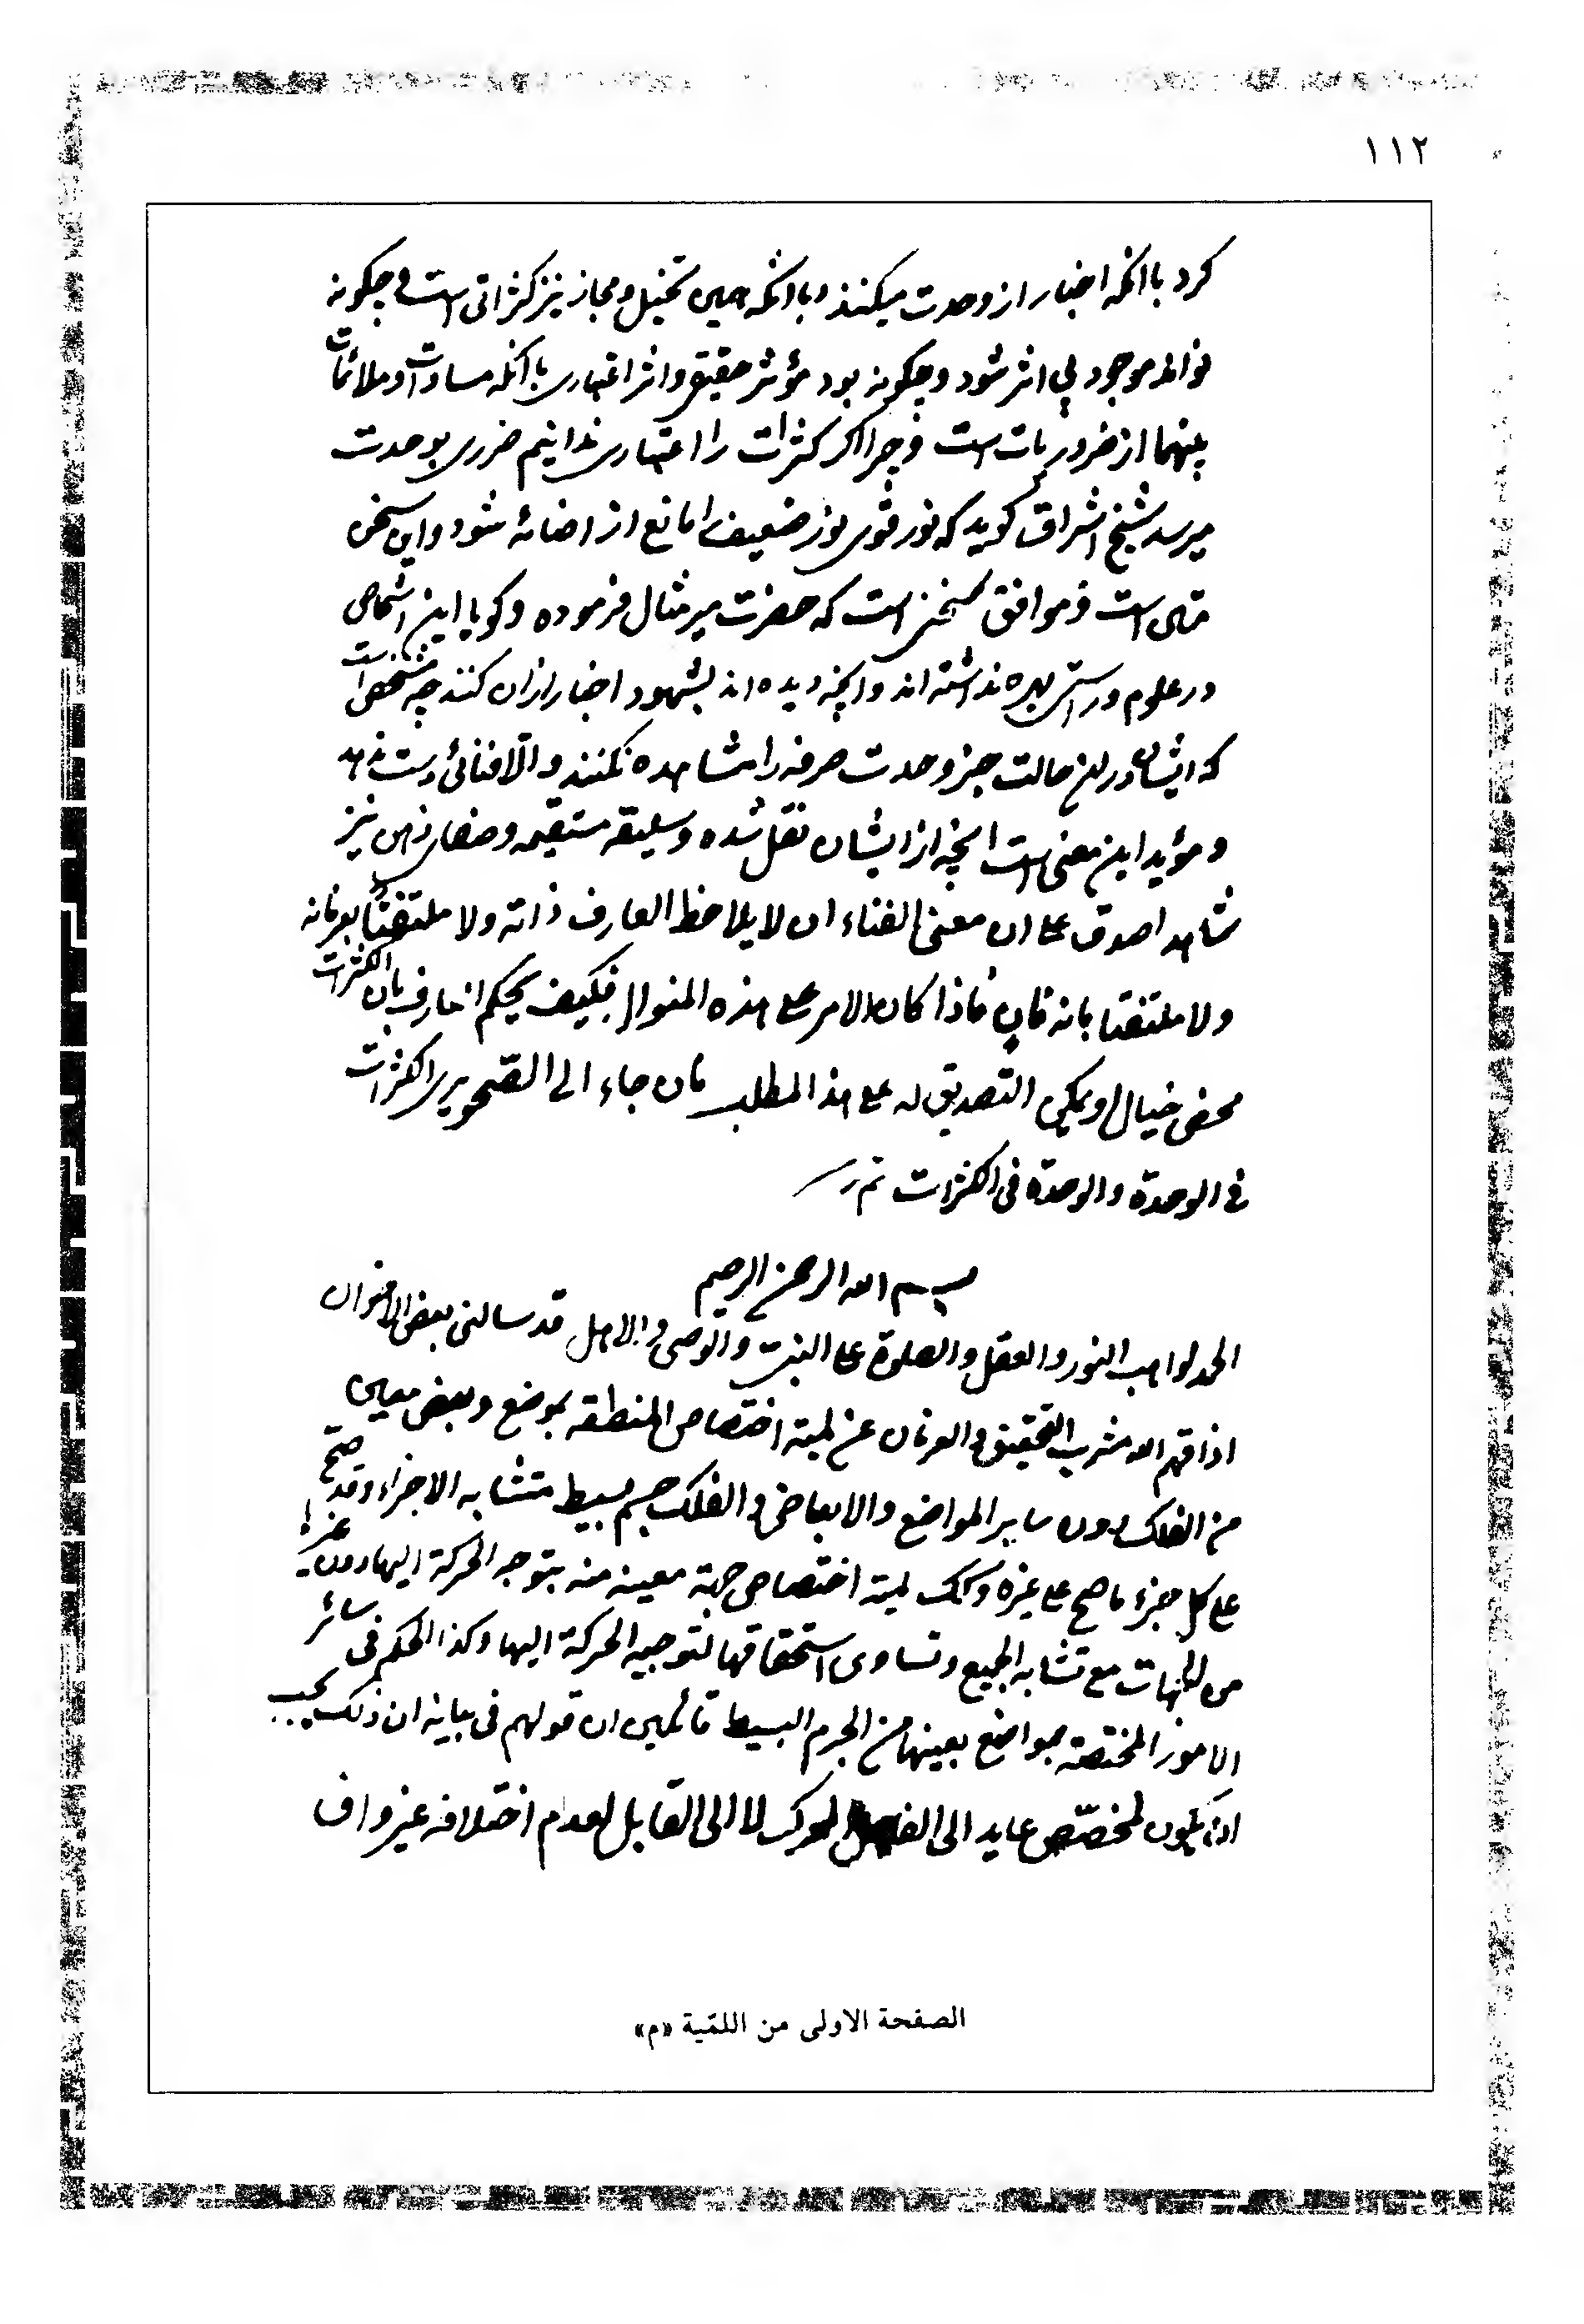 ١١٢
کرد با انکه اخبار از وحدت میکنند و با انکه همین تخیل و مجاز نیز کثراتی است و چکونه
تواند موجود بی اثر شود و چکونه بود مؤثر حقیقی و اثر اعتباری با آنکه مساوات و ملائمات
بینهما از ضروریات است و چرا اکر کثرات را اعتباری ندانیم ضرری بوحدت
میرسد شیخ اشراق کوید که نور قوی نور ضعیف را مانع از اضائه شود و این سخن
است و موافق سخنی است که حضرت میر مثال فرموده و کویا این اشخاص
در علوم رسمی بهره نداشته اند و انچه دیده اند بشهود اخبار ازان کنند چه مشخص است
که ایشان در این حالت جز وحدت صرفه را مشاهده نکنند و الّا فنائی دست ندهد
و مؤید این معنی است انچه از ایشان نقل شده و سلیقه مستقیمه و صفای ذهن نیز
شاهد اصدق علی ان معنی الفناء ان لا یلاحظ العارف ذاته ولا ملتفتا بعرفانه
ولا ملتفتا بانه فانٍ فاذا کان الامر علی هذه المنوال فکیف یحکم العارف بان الکثرات
محض خیال او یمکن التصدیق له علی هذا المطلب فان جاء الی الصّحو یری الکثرات
فی الوحدة والوحدة فی الکثرات تم
بسم الله الرحمن الرحیم
الحمد لواهب النور والعقل والصلوة علی النبی والوصی والاهل قد سالنی بعض الاخوان
اذاقهم الله مشرب التحقیق والعرفان عن لمیة اختصاص المنطقة بموضع وبعض معین
من الفلک دون سایر المواضع والابعاض والفلک جسم بسیط متشابه الاجزاء وقد صحّ
علی کل جزء ما صح علی غیره وکذلک لمیة اختصاص جهة معینة منه بتوجه الحرکة الیها دون غیرها
من الجهات مع تشابه الجمیع وتساوی استحقاقها لتوجیه الحرکة الیها وکذا الحکم فی سائر
الامور المختصة بمواضع بعینها من الجرم البسیط قائلین ان قولهم فی بیانه ان ذلک یجب
ان یکون لمخصّص عاید الی الفاعل المحرک لا الی القابل لعدم اختلافه غیر واف
الصفحة الاولى من اللمّية «م»